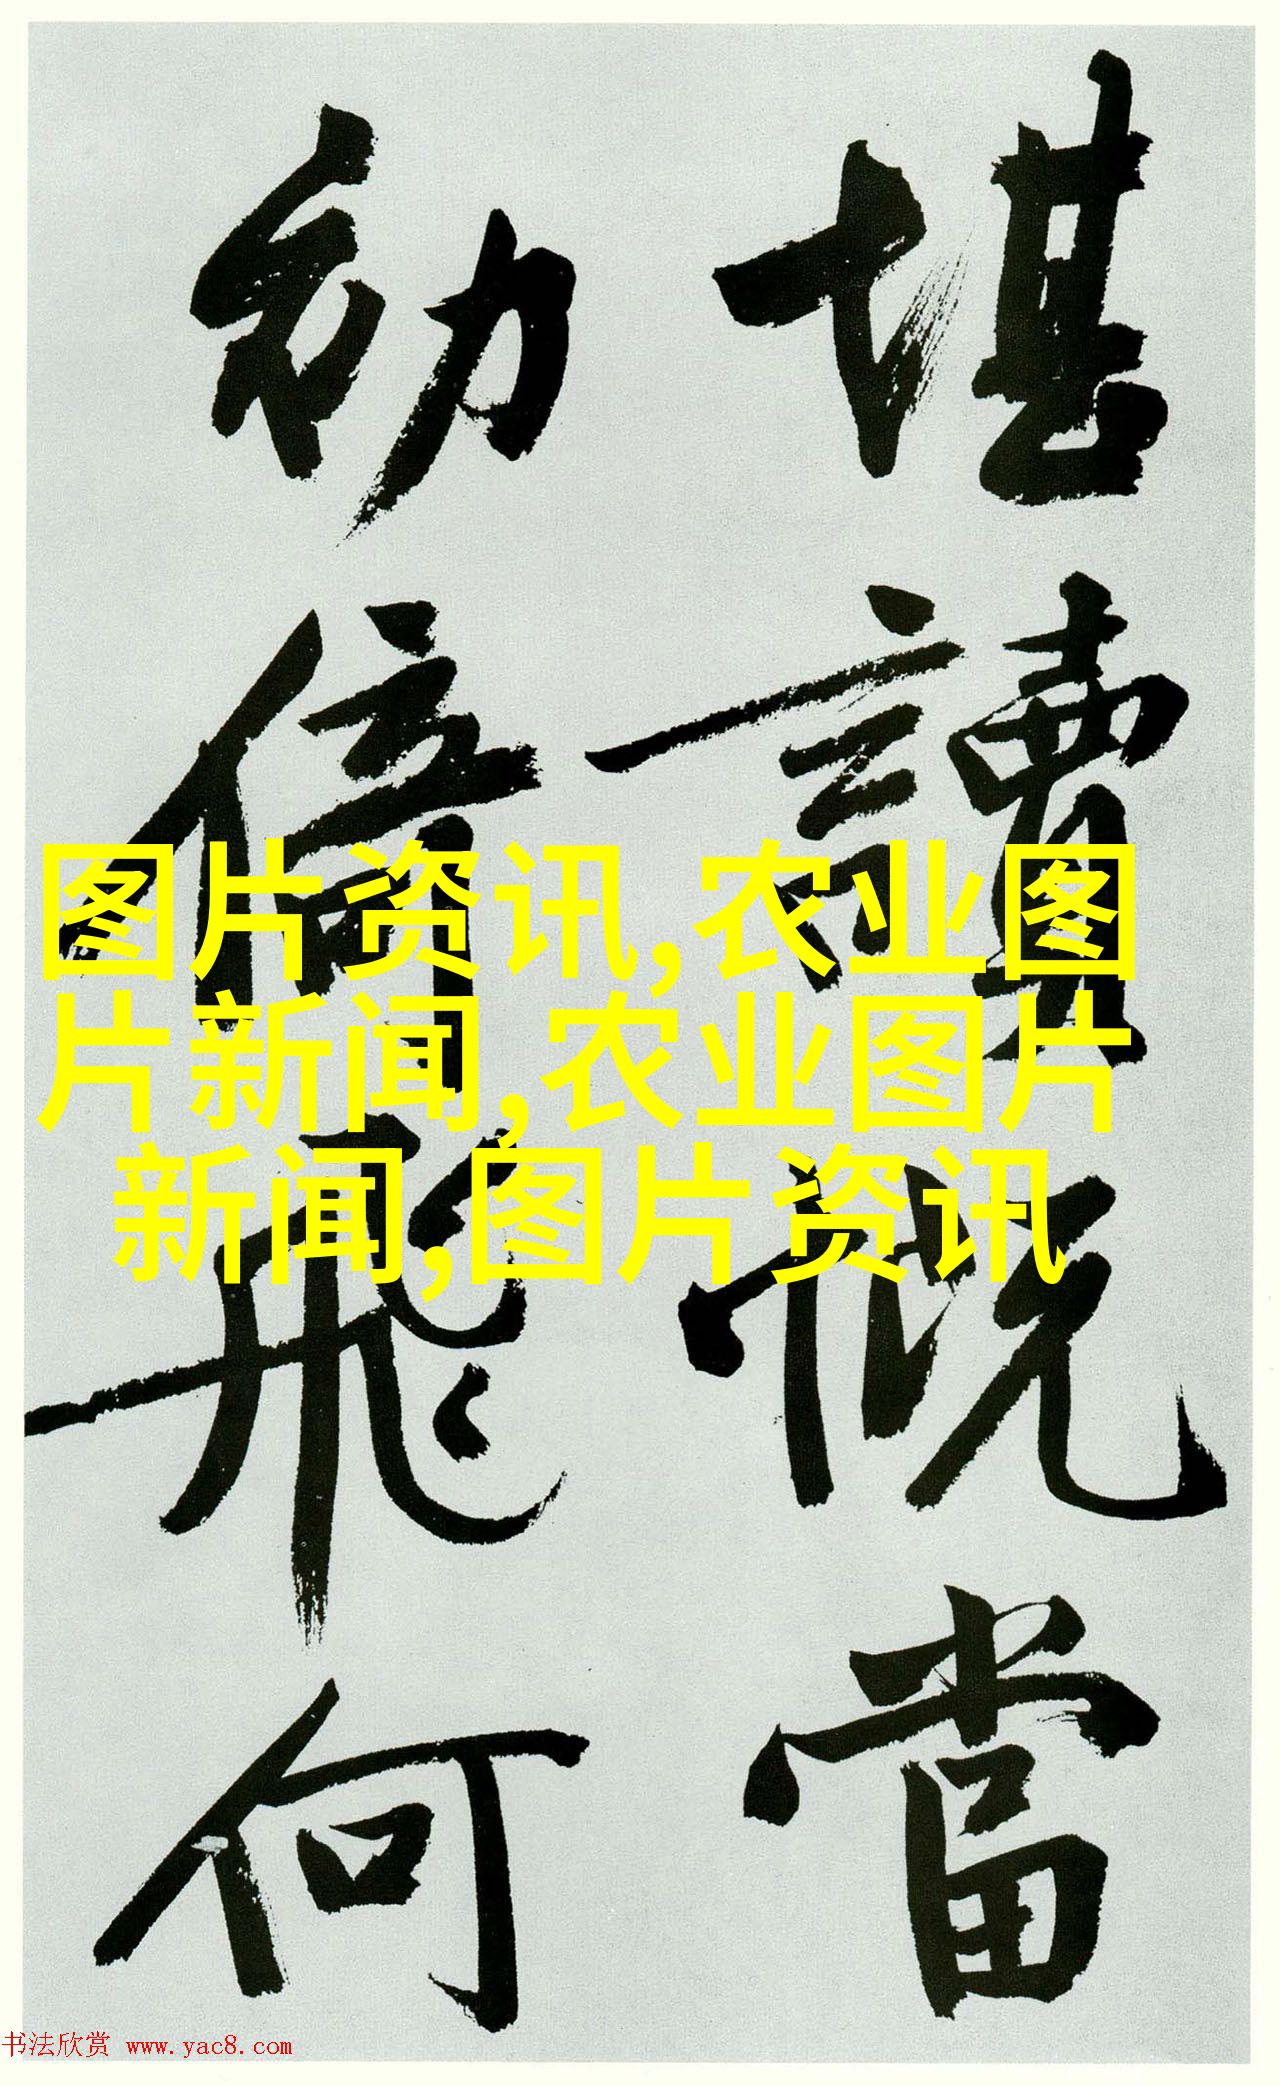 堪讀慨當
幼飛何
图片资讯,农业图
片新闻,农业图片
新闻,图片资讯
书法欣赏 www.yac8.com